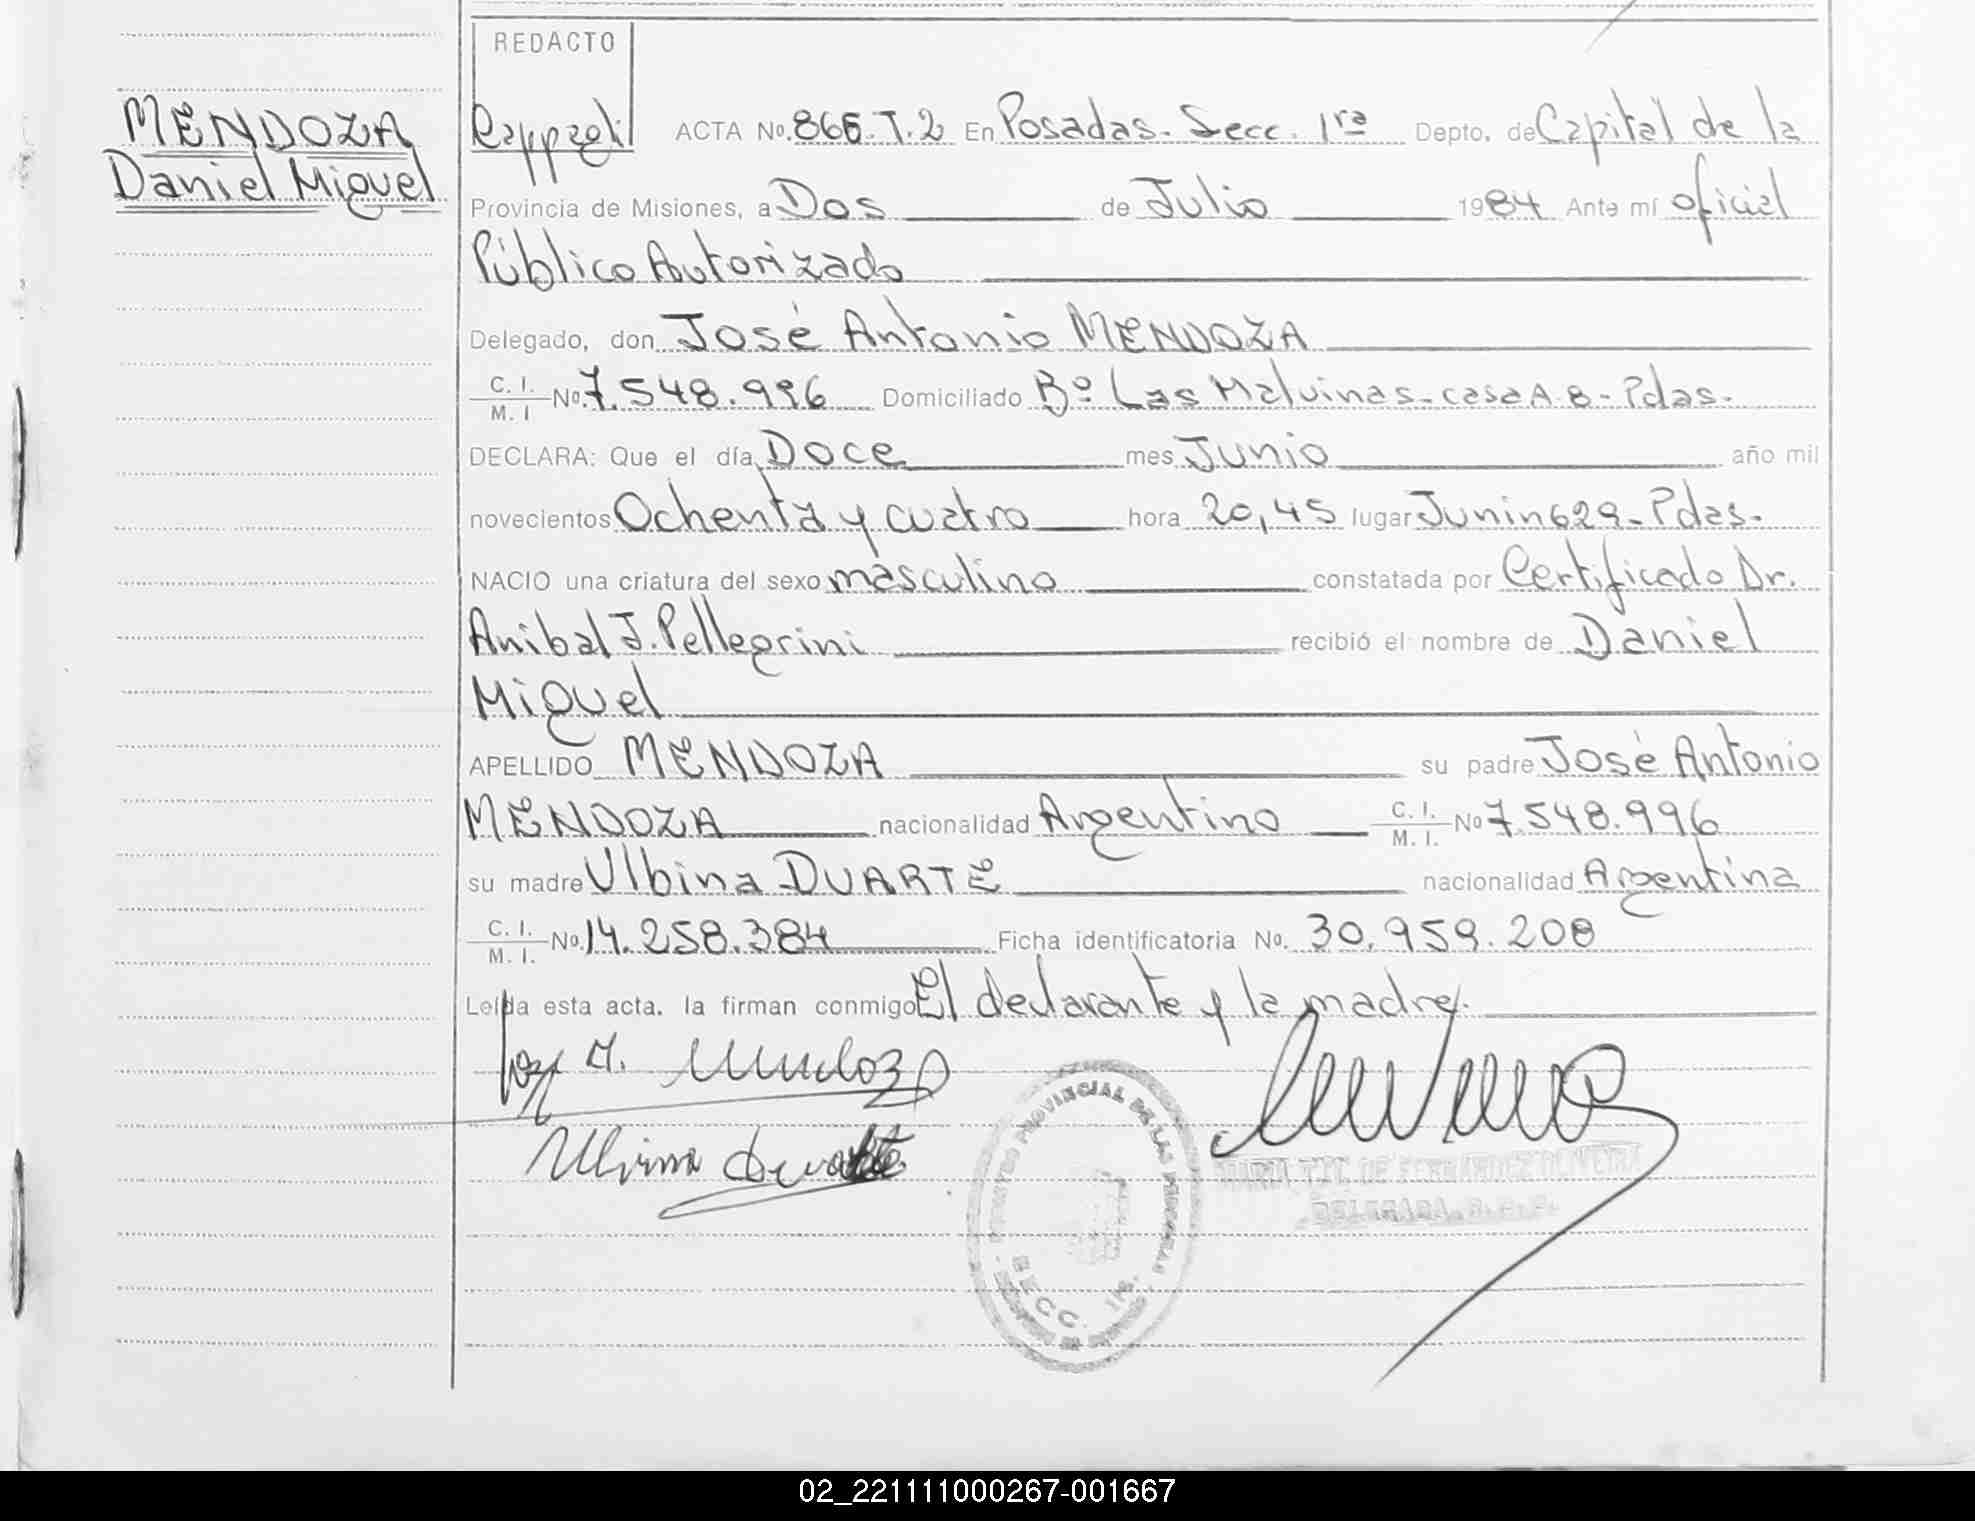 REDACTO
MENDOZA
Daniel Miguel
ACTA No. 866. T. 2 En Posadas. Secc. 1ra Depto. de Capital de la
Provincia de Misiones, a Dos de Julio 1984 Ante mí oficial
Público Autorizado
Delegado, don José Antonio MENDOZA
C. I. / M. I No. 7.548.996 Domiciliado Bº Las Malvinas - casa A. 8 - Pdas.
DECLARA: Que el día Doce mes Junio año mil
novecientos Ochenta y cuatro hora 20,45 lugar Junin 629 - Pdas.
NACIO una criatura del sexo masculino constatada por Certificado Dr.
Anibal J. Pellegrini recibió el nombre de Daniel
Miguel
APELLIDO MENDOZA su padre José Antonio
MENDOZA nacionalidad Argentino C. I. / M. I. No 7.548.996
su madre Ulbina DUARTE nacionalidad Argentina
C. I. / M. I. No. 14.258.384 Ficha identificatoria No. 30.959.208
Leída esta acta. la firman conmigo El declarante y la madre.
Jose A. Mendoza
Ulbina Duarte
PROVINCIAL DE LAS PERSONAS
SECC. 1ra.
02_221111000267-001667